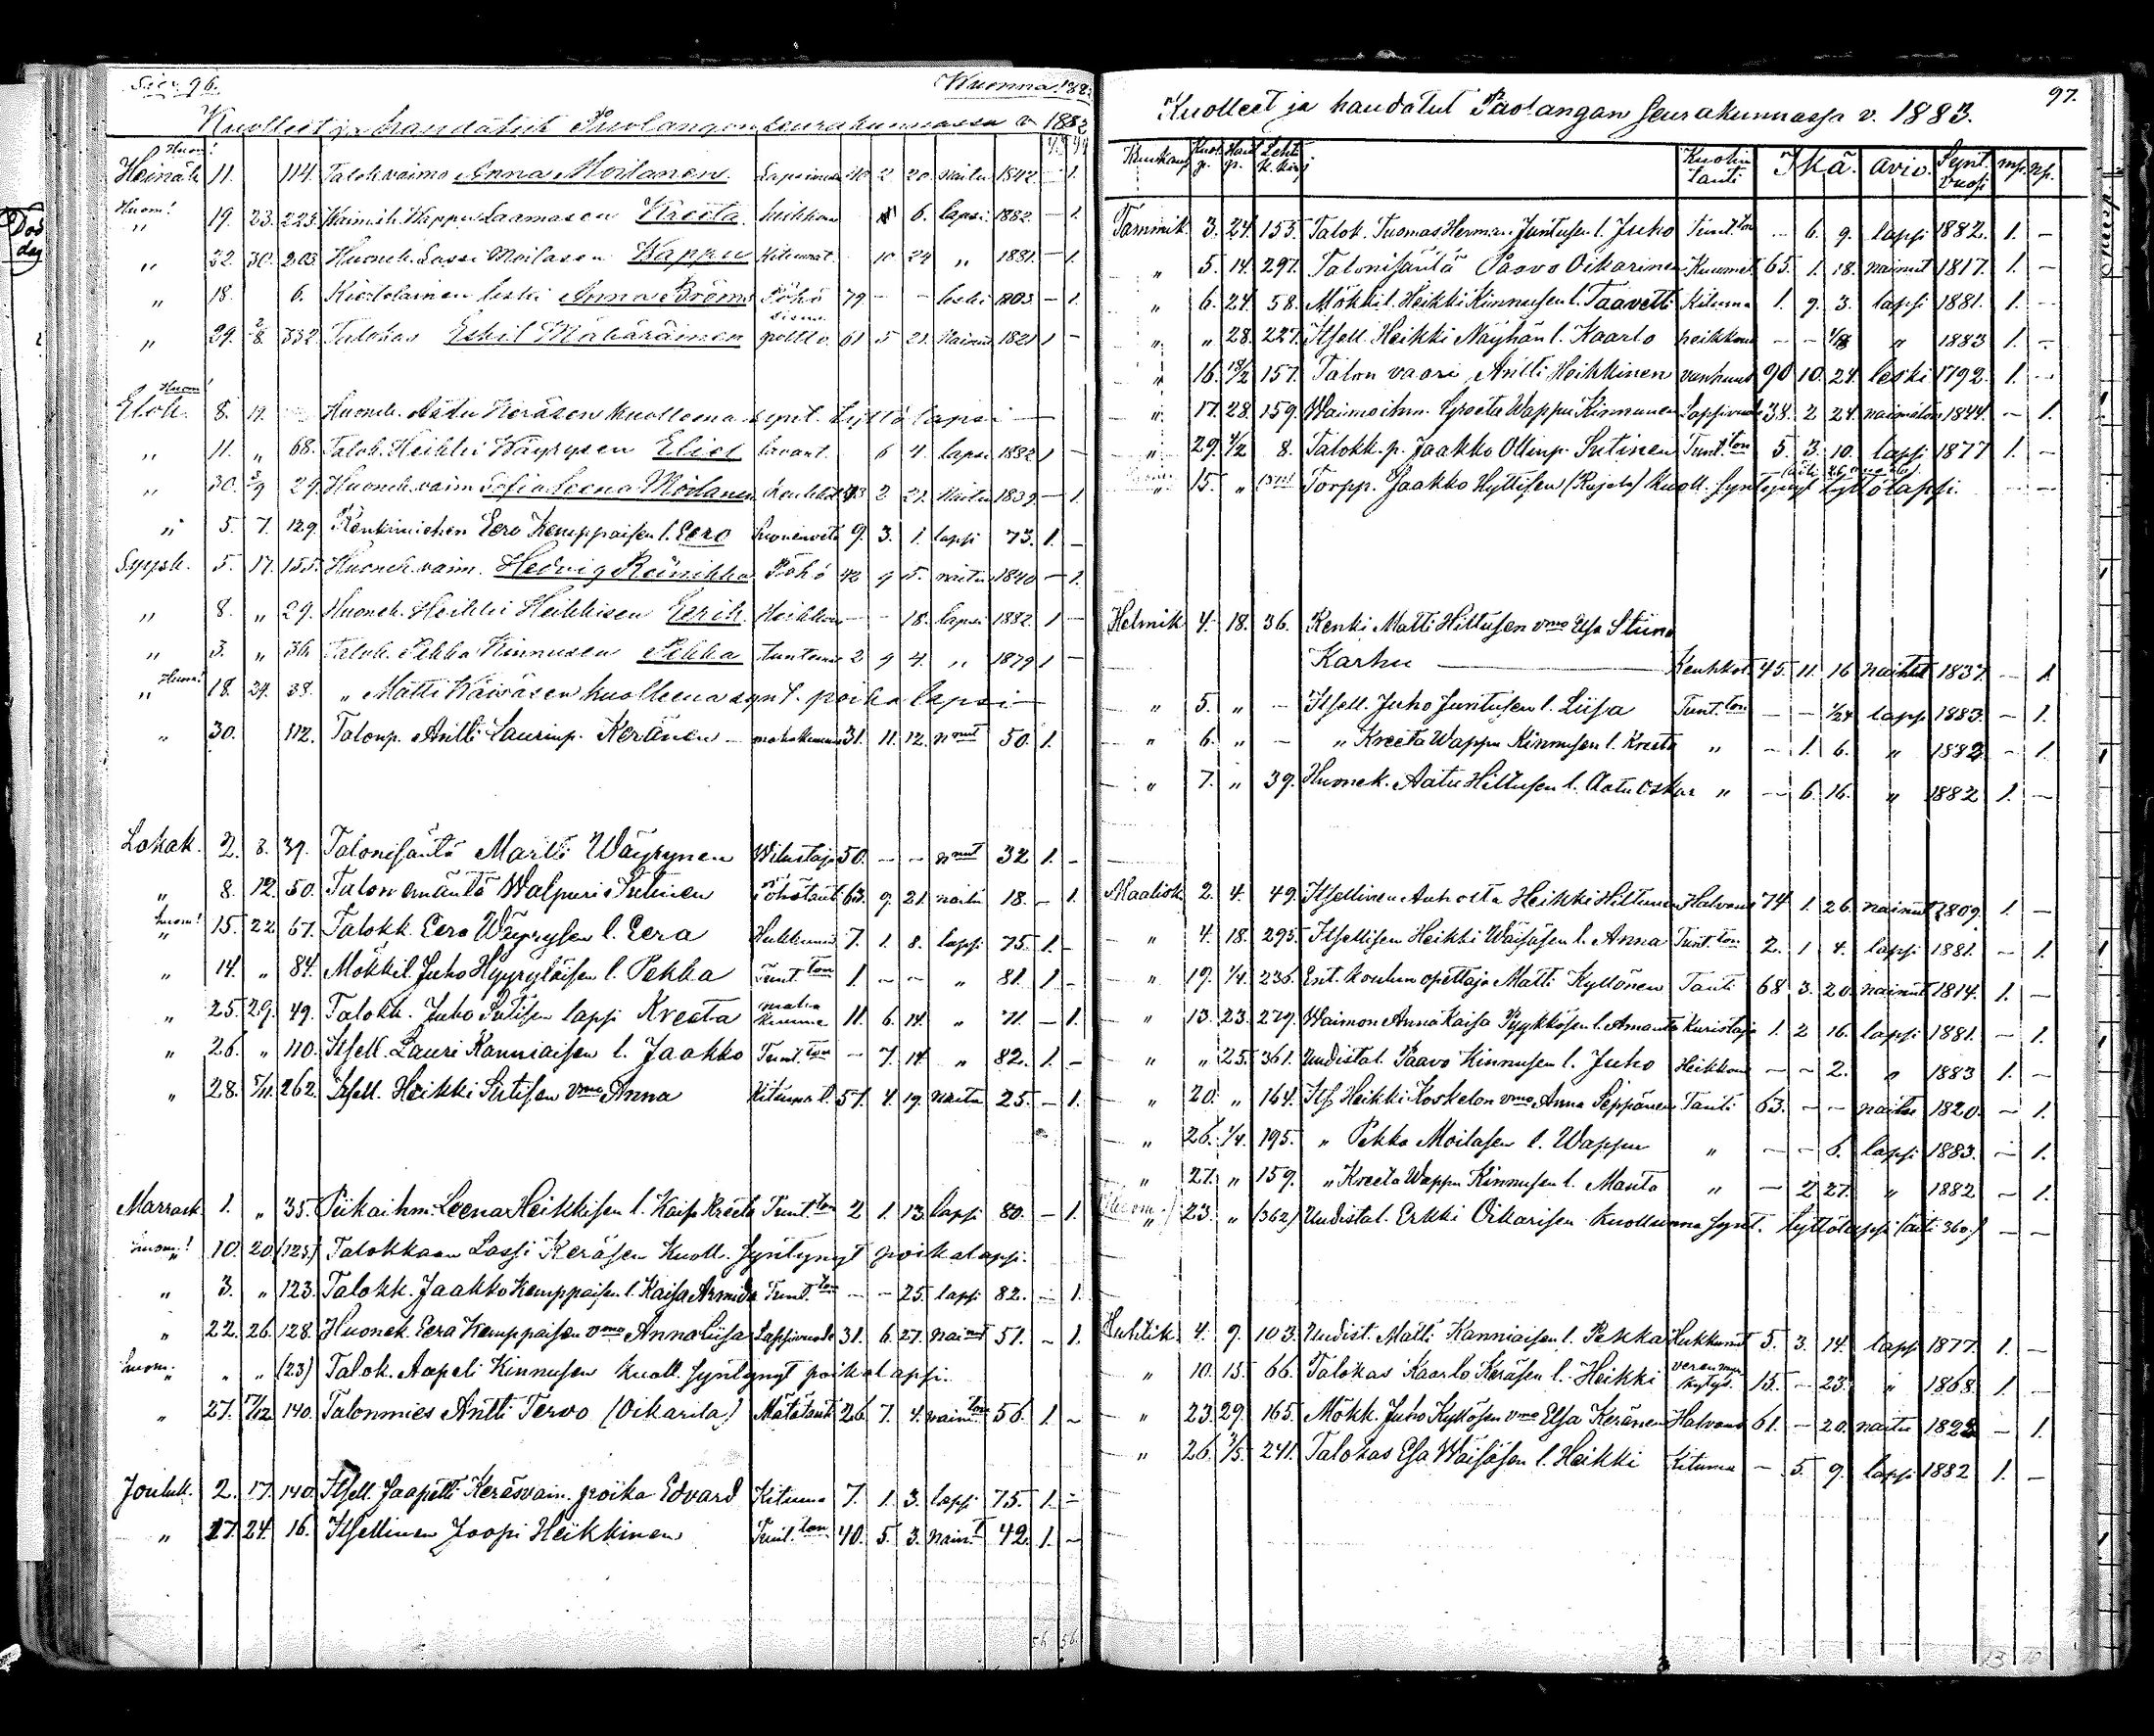 Siv. 96.
Vuonna 188
Kuolleet ja haudatut Puolangan seurakunnassa v 1882
Huom!
Heinäk 11. 114. Talok. vaimo Anna Moilanen. 40 2 20. naitu 1842 — 1.
Huom!
" 19. 23. 223. Kappu Laamasen Kreeta 6. lapsi 1882. — 1.
" 22. 30. 203. Huonek. Lassi Moilasen Wappu Kitumat. 10 24 " 1881. — 1.
" 18. 6. leski Anna 79 — — leski 1803. — 1.
" 29. 2/8 332. Talokas Eskil 61 5 21. Nainut 1821 1 —
Huom!
Elok. 8. 17. Huonek. Aatu Keräsen kuolleena synt. tyttö lapsi —
" 11. " 68. Talok. Heikki Väyrysen Eliel 6 4. lapsi 1882 1 —
" 30. 3/9 29. Huonek. vaim. Sofia Leena Moilanen 43 2 21. Naitu 1839 — 1.
" 5. 7. 129. Renkimiehen Eero Kemppaisen l. Eero 9. 3. 1. lapsi 73. 1. —
Syysk. 5. 17. 155. Huonek. vaim. Hedvig Reinikka Pöhö 42 9 5. naitu 1840 — 1.
" 8. " 29. Huonek. Heikki Heikkisen Eerik Heikkous — — 18. lapsi 1882. 1 —
" 3. " 36 Talok. Pekka Kinnusen Pekka 2 9 4. " 1879 1 —
Huom!
" 18. 24. 38. " Matti Väisäsen kuolleena synt. poika lapsi —
" 30. 112. Talonp. Antti Laurinp. Keränen — 31. 11. 12. nnut 50. 1.
Lokak. 2. 8. 39. Talonisäntä Martti Wäyrynen Vilustaja 50. — — nnut 32 1. —
" 8. 12. 50. Talon emäntä Walpuri Sutinen 63. 9. 21. naitu 18. — 1.
huom!
" 15. 22 67. Talokk. Eero Wäyrysen l. Eera Hukkunut 7. 1. 8. lapsi 75. 1. —
" 14. " 84. Mökkil. Juho Hyyryläisen l. Pekka Tunt.ton 1. — — " 81. 1 —
" 25. 29. 49. Talokk. Juho Sutisen lapsi Kreeta 11. 6. 14. " 71. — 1.
" 26. " 110. Itsell. Lauri Kanniaisen l. Jaakko Tunt.ton — 7. 14. " 82. 1. —
" 28. 5/11. 262. Itsell. Heikki Sutisen vmo Anna 57. 4. 19. naitu 25. — 1.
Marrask 1. " 35. Piikaihm. Leena Heikkisen l. Kaisa Kreeta Tunt.ton 2 1. 13. lapsi 80. — 1.
huom!
" 10. 20 (125) Talokkaan Lassi Keräsen kuoll. syntynyt poikalapsi.
" 3. " 123. Talokk. Jaakko Kemppaisen l. Kaisa Armida Tunt.ton — — 25. lapsi 82. — 1.
" 22. 26. 128. Huonek. Eera Kemppaisen vmo Anna Liisa Lapsivuode 31. 6. 27. nainut 51. — 1.
huom.
" " " (23) Talok. Aapeli Kinnusen kuoll. syntynyt poikalapsi.
" 27. 7/12 140. Talonmies Antti Tervo (Oikarila) Mätätauti 26. 7. 4. naimton 56. 1. —
Jouluk. 2. 17. 140. Itsell. Jaapetti Keräsvain. poika Edvard Kituma 7. 1. 3. lapsi 75. 1. —
" 17. 24. 16. Itsellinen Joopi Heikkinen Tunt.ton 40. 5. 3. nain.t 42. 1. —
56 56.
97.
Kuolleet ja haudatut Puolangan seurakunnassa v. 1883.
Kuukausi Kuol. p. Haut. p. Leht. k. kirj Kuolin tauti Ikä. avio. Synt. vuosi mp. np.
Tammik. 3. 24. 153. Talok. Tuomas Herman Juntusen l. Juho Tunt.ton — 6. 9. lapsi 1882. 1. —
" 5. 14. 297. Talonisäntä Paavo Oikarinen Kuumet. 65. 1. 18. nainut 1817. 1. —
" 6. 24. 58. Mökkil. Heikki Kinnusen l. Taavetti Kituma 1. 9. 3. lapsi 1881. 1. —
" " 28. 227. Itsell. Heikki Näyhän l. Kaarlo heikkous — — " 1883 1. —
" 16. 18/2 157. Talon vaari Antti Heikkinen vanhuus 90 10. 24. leski 1792. 1. —
" 17. 28. 159. Waimoihm. Greeta Wappu Kinnunen Lapsivuode 38. 2 24. naimaton 1844. — 1.
" 29. 4/2 8. Talokk. p. Jaakko Ollinp. Sutinen Tunt.ton 5. 3. 10. lapsi 1877 1. —
" 15. " Torpp. Jaakko Hyttisen kuoll. syntynyt tyttölapsi. — —
Helmik 4. 18. 36. Renki Matti Hiltusen vmo Elsa Stiina
Karhu — Keuhkot. 45. 11. 16 naitu 1837. — 1.
" 5. " — Itsell. Juho Juntusen l. Liisa Tunt.ton — — 1/24 lapsi 1883. — 1.
" 6. " — " Kreeta Wappu Kinnusen l. Kreeta " — 1. 6. " 1882. — 1.
" 7. " 39. Huonek. Aatu Hiltusen l. Aatu Oskar " — 6. 16. " 1882 1. —
Maalisk. 2. 4. 49. Itsellinen Heikki Hiltunen Halvaus 74 1. 26. nainut 1809. 1. —
" 4. 18. 295. Itsellisen Heikki Wäisäsen l. Anna Tunt.ton 2. 1 4. lapsi 1881. — 1.
" 19. 1/4. 236. Ent. koulun opettaja Matti Kyllönen Tauti 68 3. 20. nainut 1814. 1. —
" 13. 23. 279. Waimon Anna Kaisa Pyykkösen l. Amanta Kuristaja 1. 2 16. lapsi 1881. — 1.
" " 25. 361. Uudistal. Paavo Kinnusen l. Juho Heikkous — — 2. " 1883 1. —
" 20. " 164. Its. Heikki Koskelon vmo Anna Seppänen Tauti 63. — — naitu 1820. — 1.
" 26. 1/4. 195. " Pekka Moilasen l. Wappu " — — 6. lapsi 1883. — 1.
" 27. " 159. " Kreeta Wappu Kinnusen l. Manta " — 2 27. " 1882 — 1.
Huom!
" 23. " (362) Uudistal. Erkki Oikarisen kuolleena synt. tyttölapsi (äiti 360) — —
Huhtik. 4. 9. 103. Uudist. Matti Kanniaisen l. Pekka Hukkunut 5. 3. 14. lapsi 1877. 1. —
" 10. 15. 66. Talokas Kaarlo Keräsen l. Heikki veren myrkytys. 15. — 23. " 1868. 1. —
" 23 29. 165. Mökk. Juho Kyllösen vmo Elsa Keränen Halvaus 61. — 20. naitu 1822 — 1.
" 26. 3/5. 241. Talokas Esa Wäisäsen l. Heikki Kituma — 5. 9. lapsi 1882 1. —
13 10